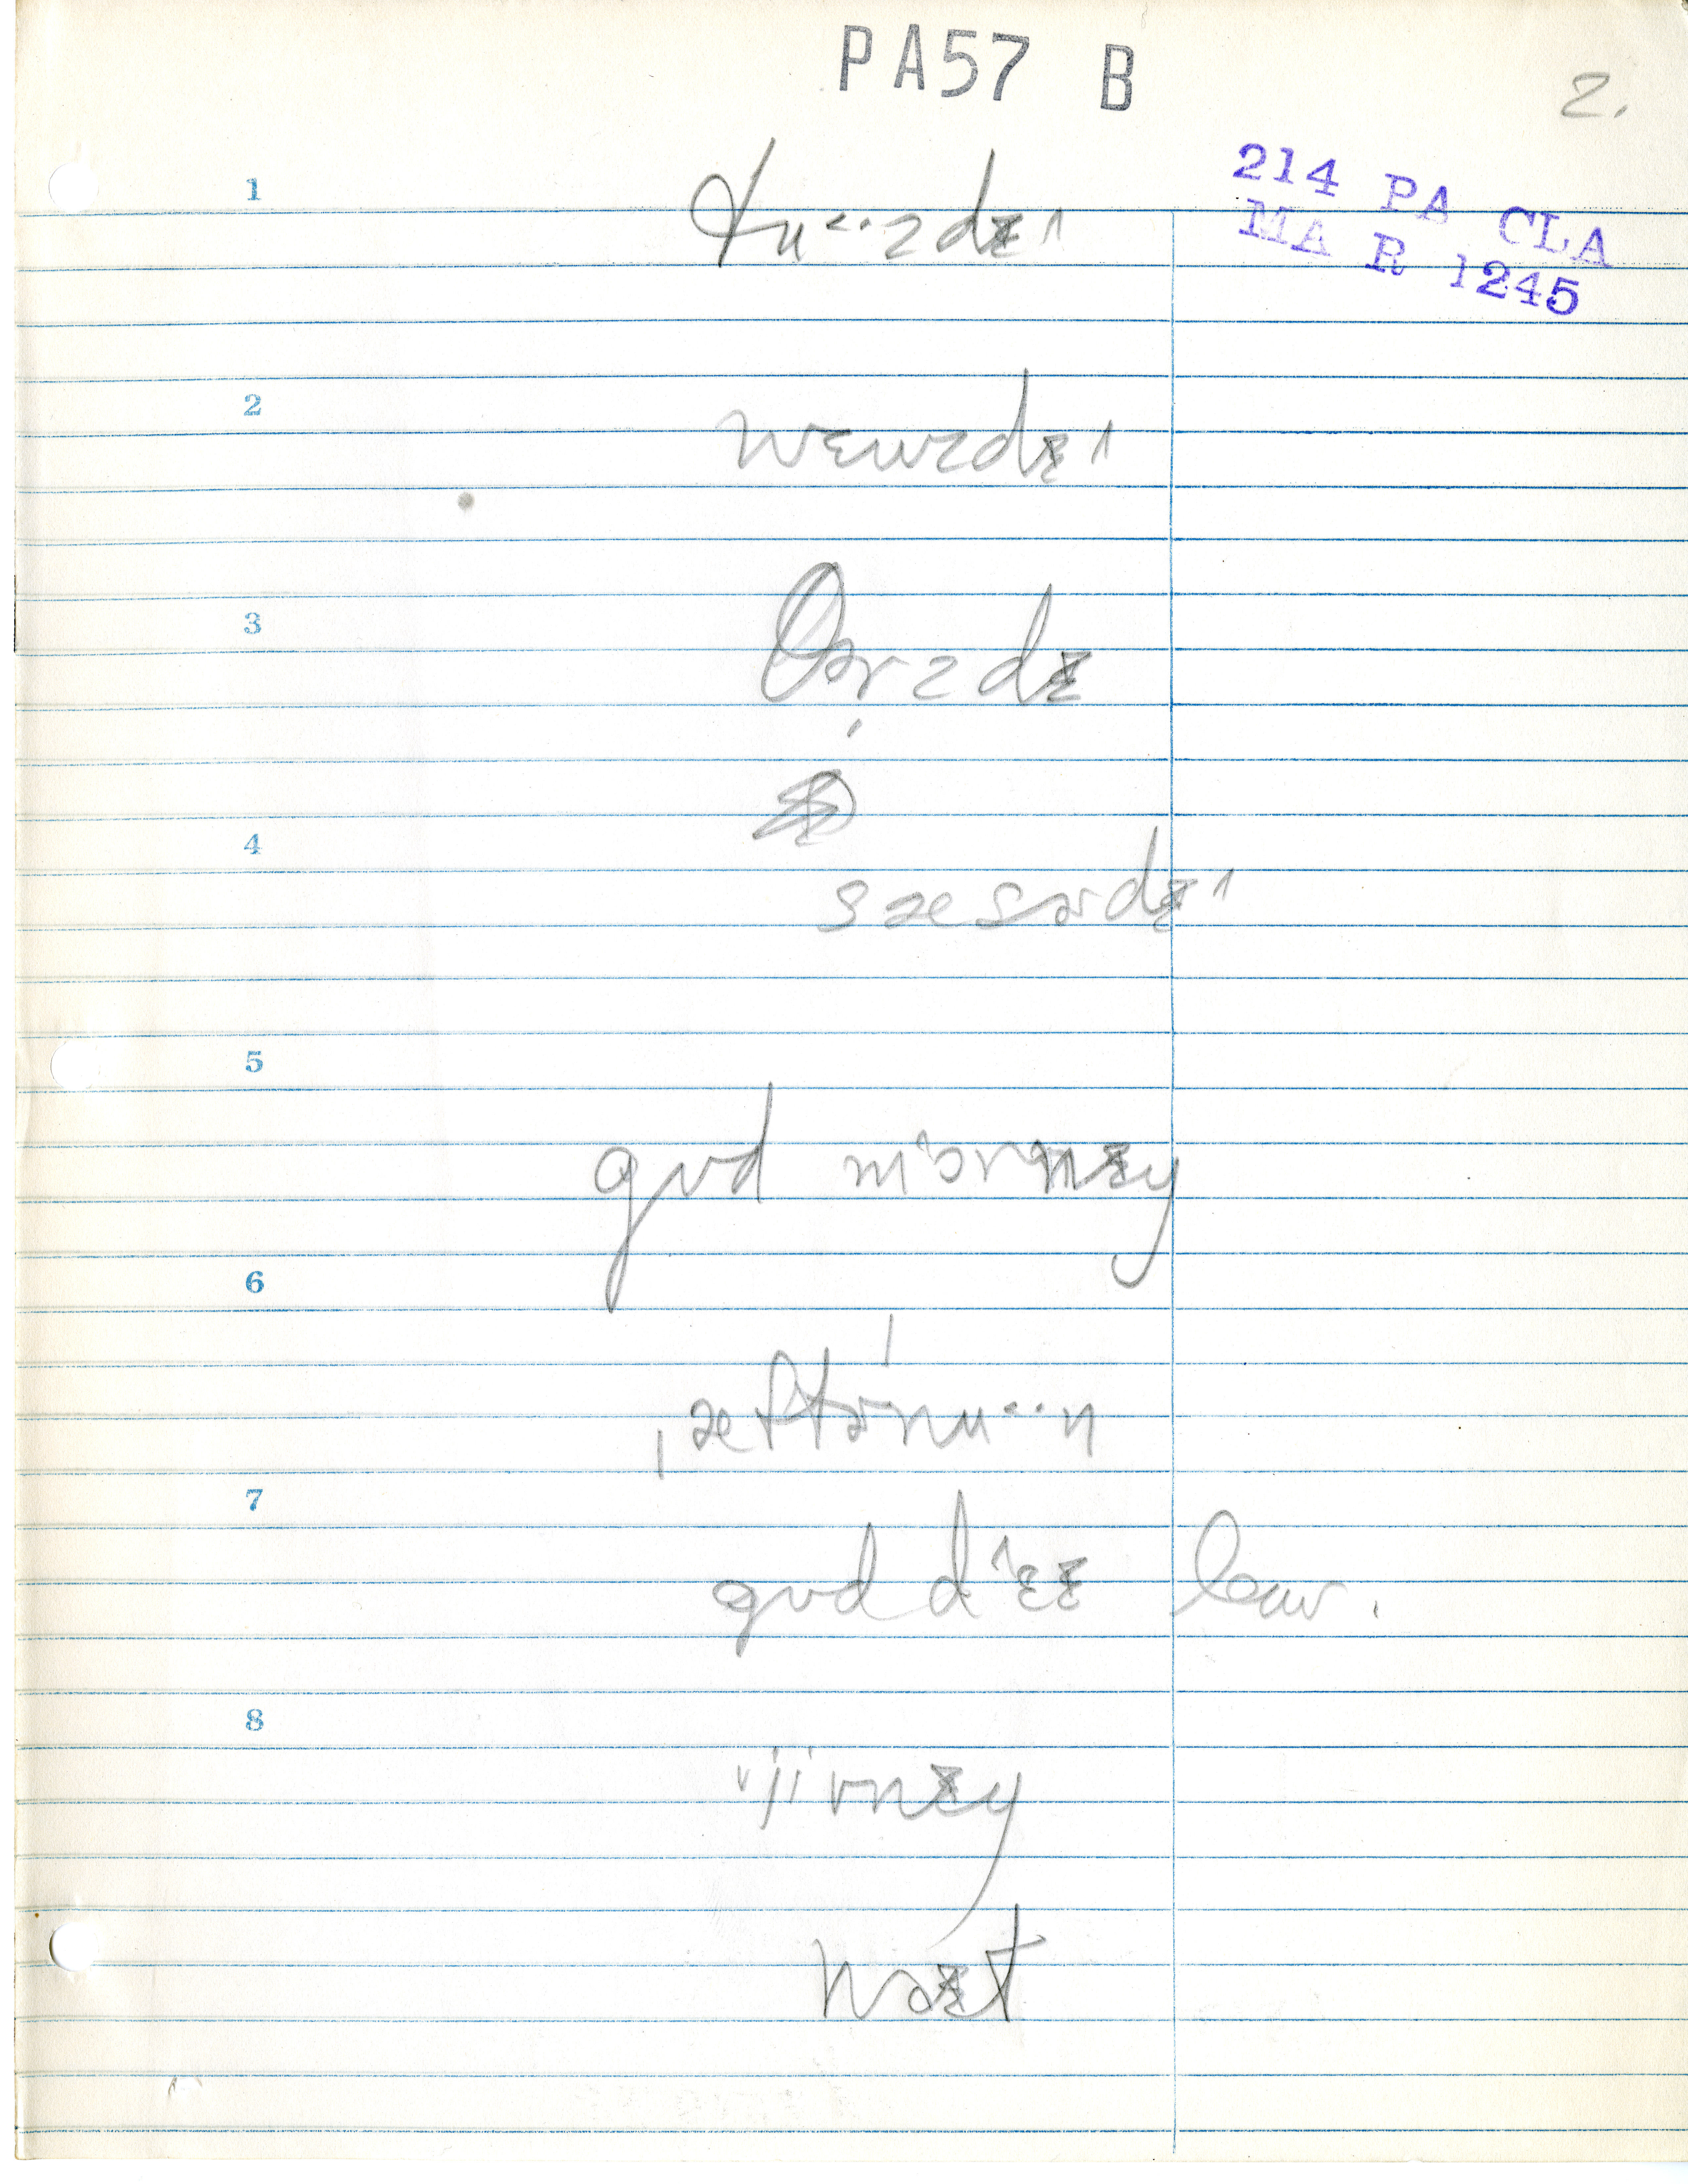 PA57 B
2.
214 PA CLA
MA R 1245
1
tʉ˂··zdɪ˄
2
wɛwzdɪ˄
3
θərzdɪ
4
sæsərdɪ˄
5
gʊd m˄ɔrnɪŋ
6
ˌæftərˈnʉ˂··n
7
gʊd d˄ɛɪ low.
8
ˈjirnɪŋ
wəɪt